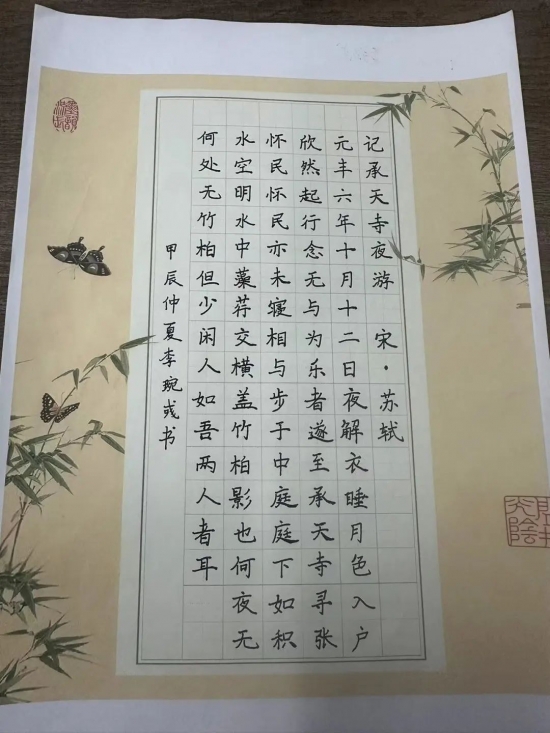 记承天寺夜游 宋·苏轼
元丰六年十月十二日夜解衣睡月色入户
欣然起行念无与为乐者遂至承天寺寻张
怀民怀民亦未寝相与步于中庭庭下如积
水空明水中藻荇交横盖竹柏影也何夜无
何处无竹柏但少闲人如吾两人者耳
甲辰仲夏李琬彧书